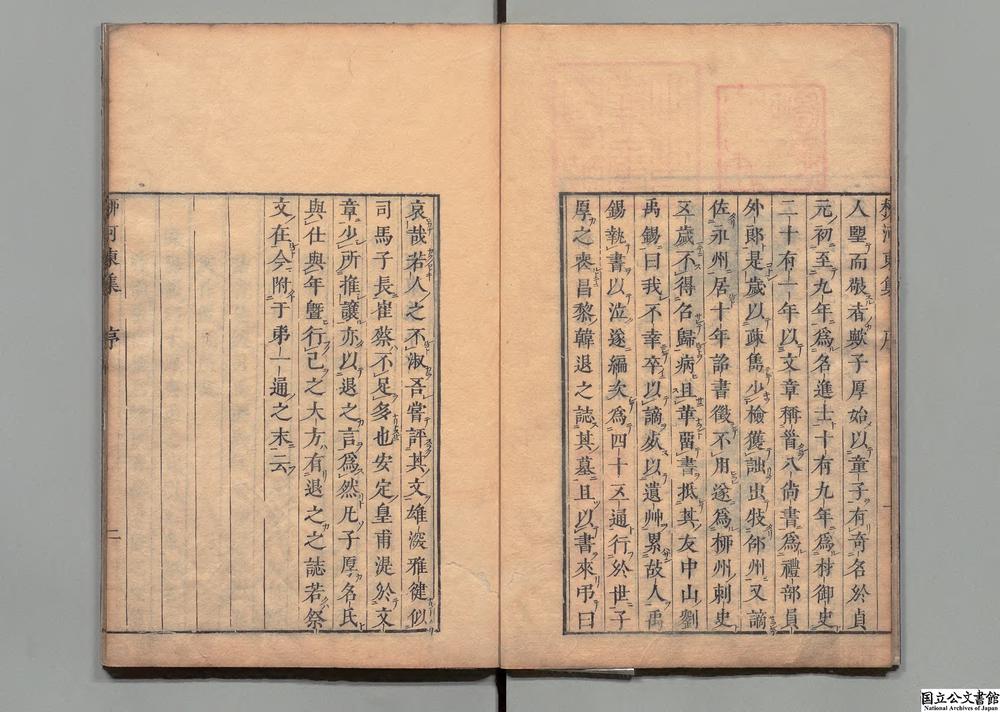 柳河東集 序 一
人望而敬者歟子厚始以童子有奇名於貞
元初至九年爲名進士十有九年爲材御史
二十有一年以文章稱首入尚書爲禮部員
外郎是歲以疎雋少檢獲訕出牧邵州又謫
佐永州居十年詔書徵不用遂爲柳州刺史
五歲不得召歸病且革留書抵其友中山劉
禹錫曰我不幸卒以謫死以遺艸累故人禹
錫執書以泣遂編次爲四十五通行於世子
厚之喪昌黎韓退之誌其墓且以書來弔曰
哀哉若人之不淑吾嘗評其文雄深雅健似
司馬子長崔蔡不足多也安定皇甫湜於文
章少所推讓亦以退之言爲然凡子厚名氏
與仕與年曁行己之大方有退之之誌若祭
文在今附于第一通之末云
柳河東集 序 二
国立公文書館
National Archives of Japan